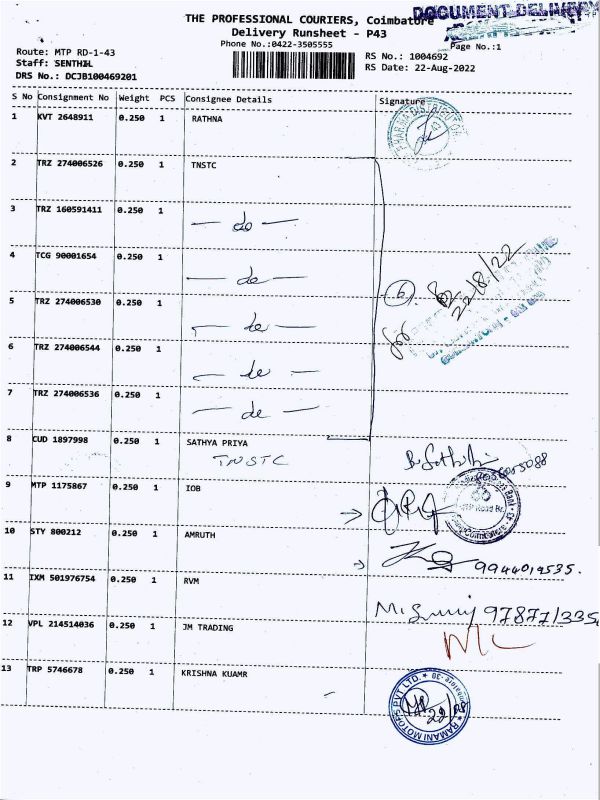 THE PROFESSIONAL COURIERS, Coimbatore
DOCUMENT DELIVERY
Delivery Runsheet - P43
Phone No.:0422-3505555
Page No.:1
Route: MTP RD-1-43
RS No.: 1004692
Staff: SENTHIL
RS Date: 22-Aug-2022
DRS No.: DCJB100469201
S No Consignment No Weight PCS Consignee Details Signature
1 KVT 2648911 0.250 1 RATHNA
2 TRZ 274006526 0.250 1 TNSTC
3 TRZ 160591411 0.250 1 — do —
4 TCG 90001654 0.250 1 — do —
5 TRZ 274006530 0.250 1 — do —
6 22/8/22
6 TRZ 274006544 0.250 1 — do —
7 TRZ 274006536 0.250 1 — do —
8 CUD 1897998 0.250 1 SATHYA PRIYA
TNSTC
9 MTP 1175867 0.250 1 IOB
10 STY 800212 0.250 1 AMRUTH
9944019535.
11 IXM 501976754 0.250 1 RVM
978771335
12 VPL 214514036 0.250 1 JM TRADING
13 TRP 5746678 0.250 1 KRISHNA KUAMR
RAMANI MOTORS PVT LTD
22/08